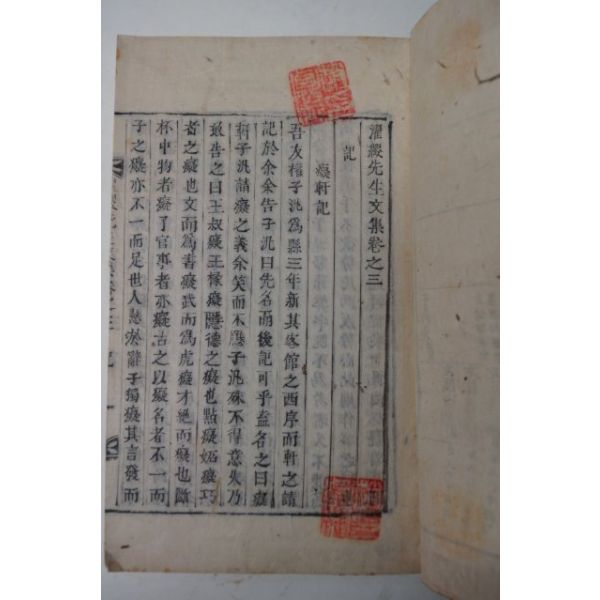 濯纓先生文集卷之三
記
癡軒記
吾友權子汎爲縣三年新其客館之西序而軒之請
記於余余告子汎曰先名而後記可乎盍名之曰癡
軒子汎請癡之義余笑而不應子汎殊不得意失乃
敢告之曰王叔癡王掾癡隱德之癡也黠癡妬癡巧
者之癡也文而爲書癡武而爲虎癡才絶而癡也斷
杯中物者癡了官事者亦癡古之以癡名者不一而
子之癡亦不一而足世人慧於辭子獨癡其言發而